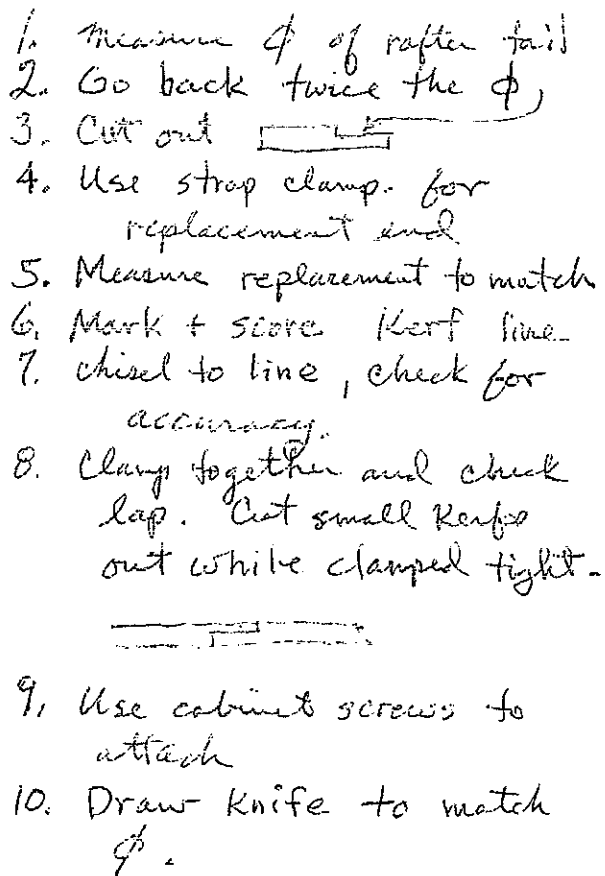 1. Measure ϕ of rafter tail
2. Go back twice the ϕ,
3. Cut out
4. Use strap clamp. for
replacement end
5. Measure replacement to match
6. Mark + score Kerf line.
7. chisel to line, check for
accuracy.
8. Clamp together and check
lap. Cut small Kerfs
out while clamped tight.
9. Use cabinet screws to
attach
10. Draw Knife to match
ϕ.